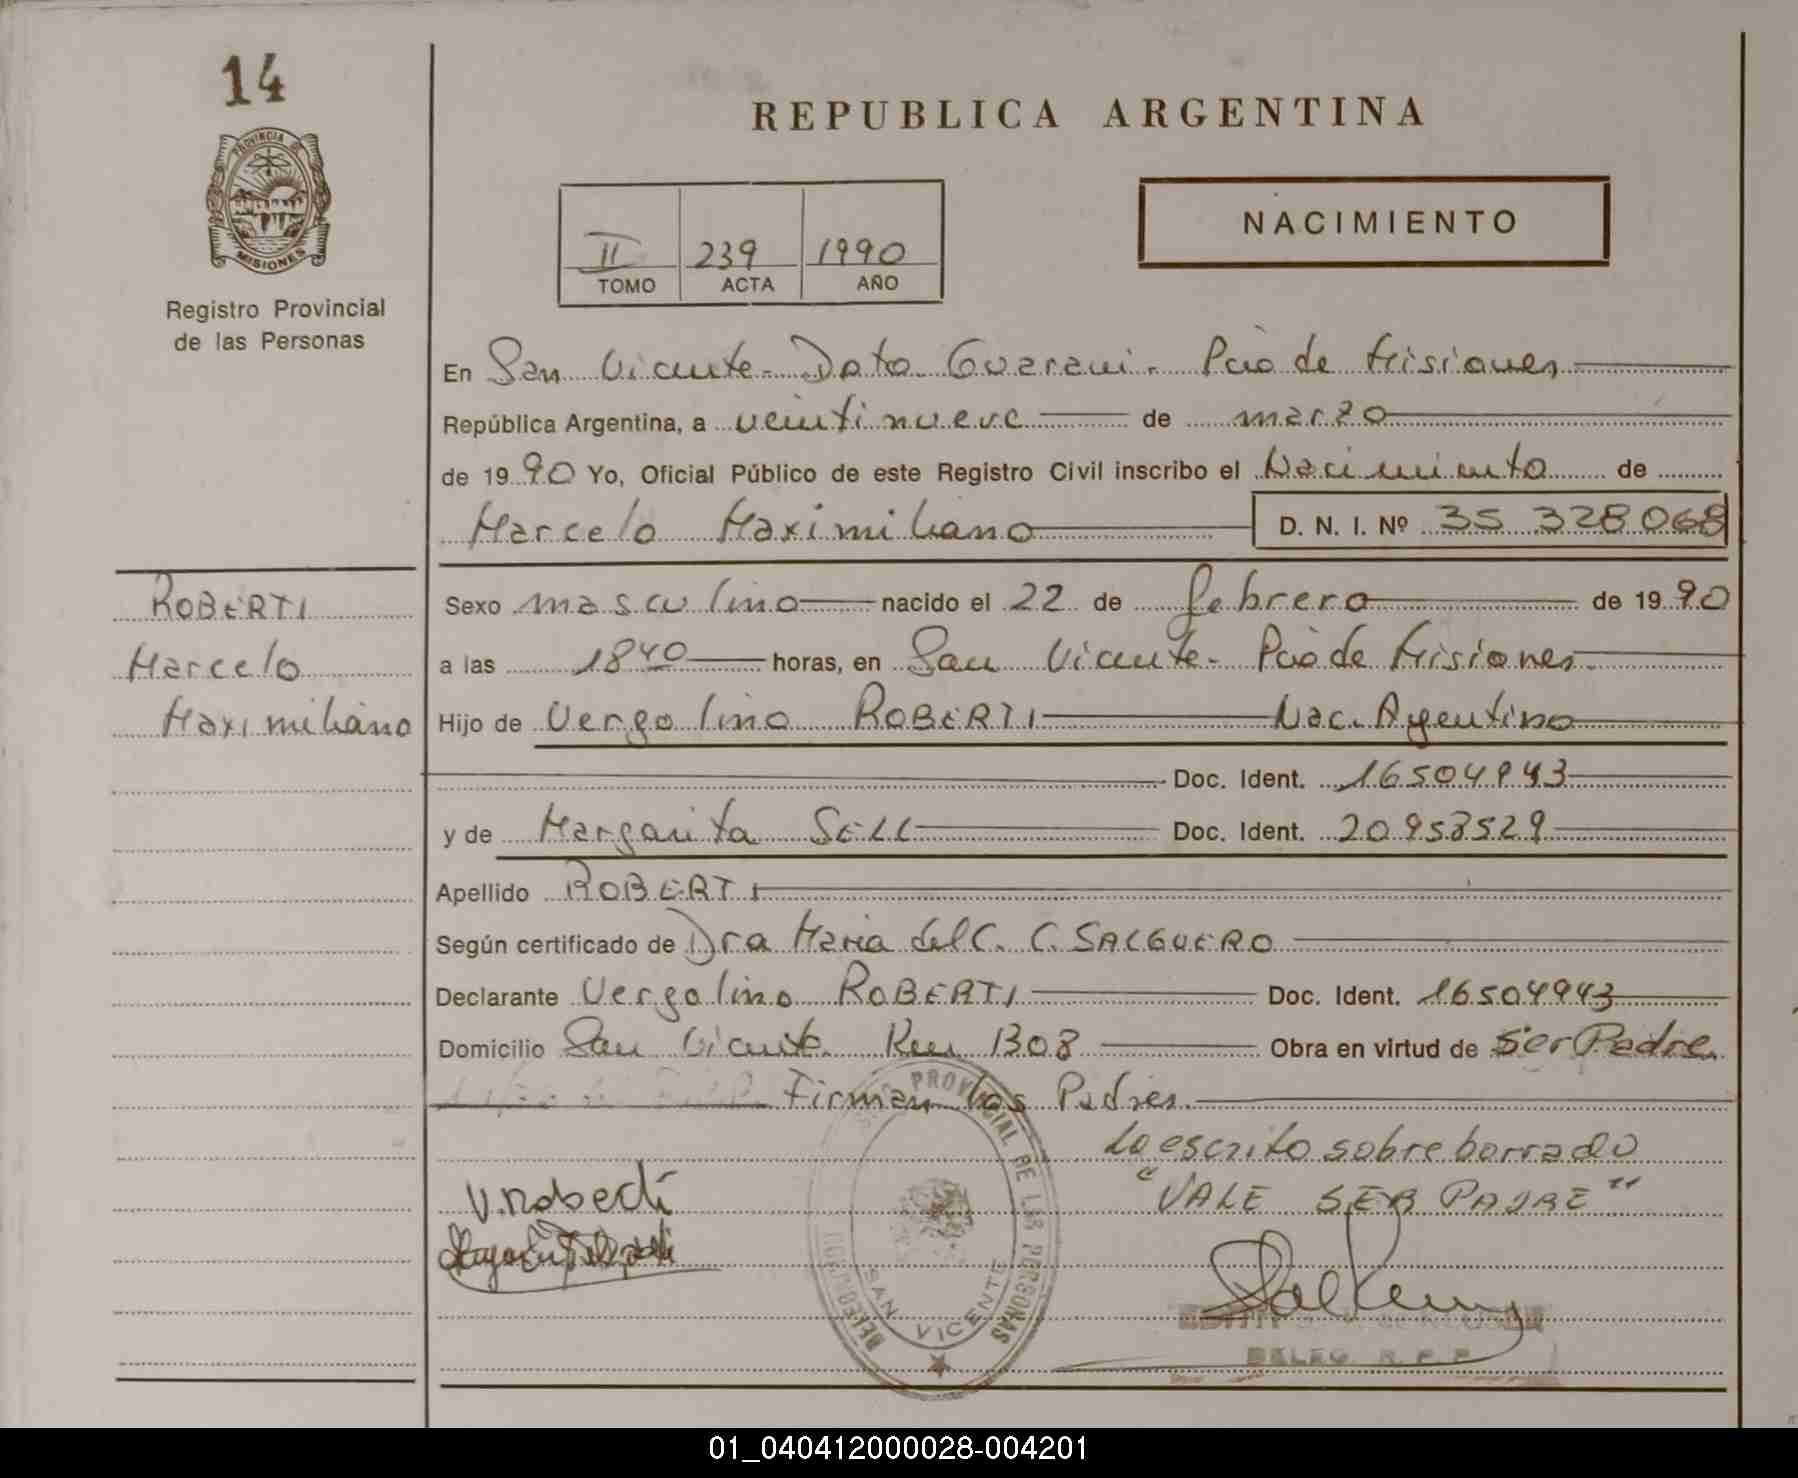 14
PROVINCIA DE
MISIONES
Registro Provincial
de las Personas
REPUBLICA ARGENTINA
NACIMIENTO
II 239 1990
TOMO ACTA AÑO
En San Vicente - Dpto Guarani - Pcia de Misiones
República Argentina, a veintinueve de marzo
de 1990 Yo, Oficial Público de este Registro Civil inscribo el Nacimiento de
Marcelo Maximiliano D. N. I. Nº 35 328068
ROBERTI
Marcelo
Maximiliano
Sexo masculino nacido el 22 de febrero de 1990
a las 1840 horas, en San Vicente - Pcia de Misiones
Hijo de Vergolino ROBERTI Nac. Argentino
Doc. Ident. 16504943
y de Margarita SELL Doc. Ident. 20953529
Apellido ROBERTI
Según certificado de Dra Maria del C. C. SALGUERO
Declarante Vergolino ROBERTI Doc. Ident. 16504943
Domicilio San Vicente Km 1308 Obra en virtud de Ser Padre
Firman los Padres.
Lo escrito sobre borrado
"VALE SER PADRE"
V. Roberti
PROVINCIAL DE LAS PERSONAS
DELEGACION
SAN VICENTE
DELEG. R. P. P.
01_040412000028-004201